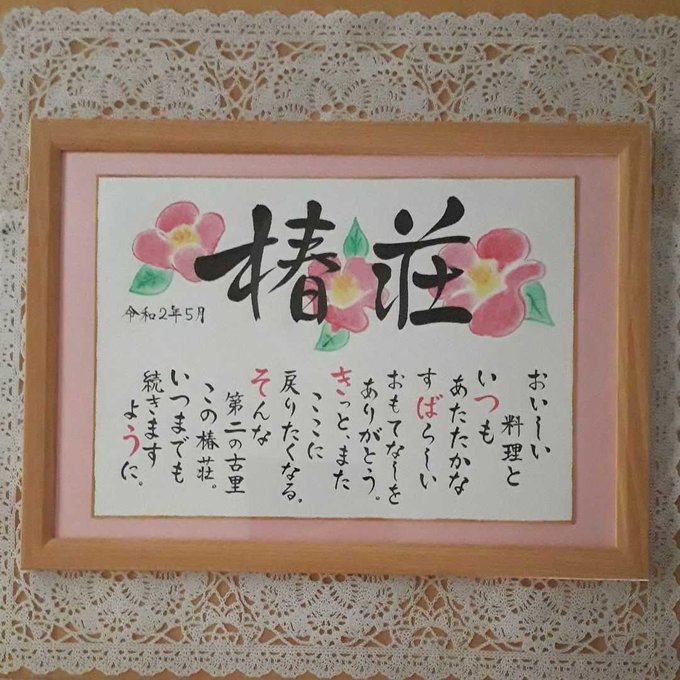 椿荘
令和2年5月
おいしい
料理と
いつも
あたたかな
すばらしい
おもてなしを
ありがとう。
きっと、また
ここに
戻りたくなる。
そんな
第二の古里
この椿荘。
いつまでも
続きます
ように。